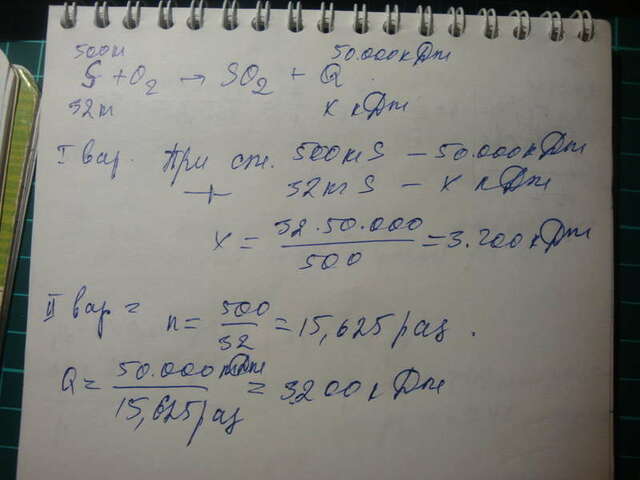 500кг 50.000кДж
S + O2 → SO2 + Q
32кг х кДж
I вар. При сж. 500кг S – 50.000кДж
32кг S – х кДж
х = 32·50.000 / 500 = 3.200кДж
II вар = n = 500 / 32 = 15,625 раз.
Q = 50.000кДж / 15,625 раз = 3200кДж